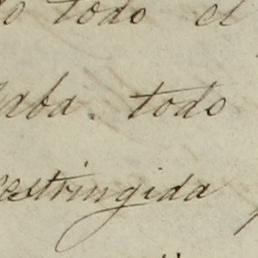 todo el
aba. todo
estringida